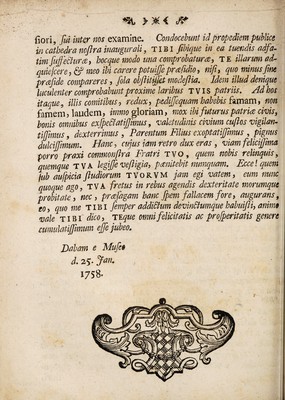 siori, sui inter nos examine. Condocebunt id propediem publice
in cathedra nostra inaugurali, TIBI sibique in ea tuendis adfa-
tim suffecturæ, hocque modo una comprobaturæ, TE illarum ad-
quiescere, & meo ibi carere potuisse præsidio, nisi, quo minus sine
præside compareres, sola obstitisset modestia. Idem illud denique
luculenter comprobabunt proxime laribus TVIS patriis. Ad hos
itaque, illis comitibus, redux, pedissequam habebis famam, non
famem, laudem, immo gloriam, mox ibi futurus patriæ civis,
bonis omnibus exspectatissimus, valetudinis civium custos vigilan-
tissimus, dexterrimus, Parentum Filius exoptatissimus, pignus
dulcissimum. Hanc, cujus iam retro dux eras, viam felicissima
porro praxi commonstra Fratri TVO, quem nobis relinquis,
quemque TVA legisse vestigia, pœnitebit nunquam. Ecce! quem
sub auspicia studiorum TVORVM jam egi vatem, eum nunc
quoque ago, TVA fretus in rebus agendis dexteritate morumque
probitate, nec, præsagam hanc spem fallacem fore, augurans,
eo, quo me TIBI semper addictum devinctumque habuisti, animo
vale TIBI dico, TEque omni felicitatis ac prosperitatis genere
cumulatissimum esse jubeo.
Dabam e Museo
d. 25. Jan.
1758.